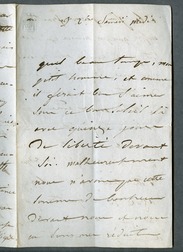 Samedi midi
quel beau temps, mon
petit homme, et comme
il ferait bon s'aimer
sous ce beau soleil si
avec quinze jours
de liberté devant
soi. malheureusement
nous n'avons que cette
de bonheur
devant nous et